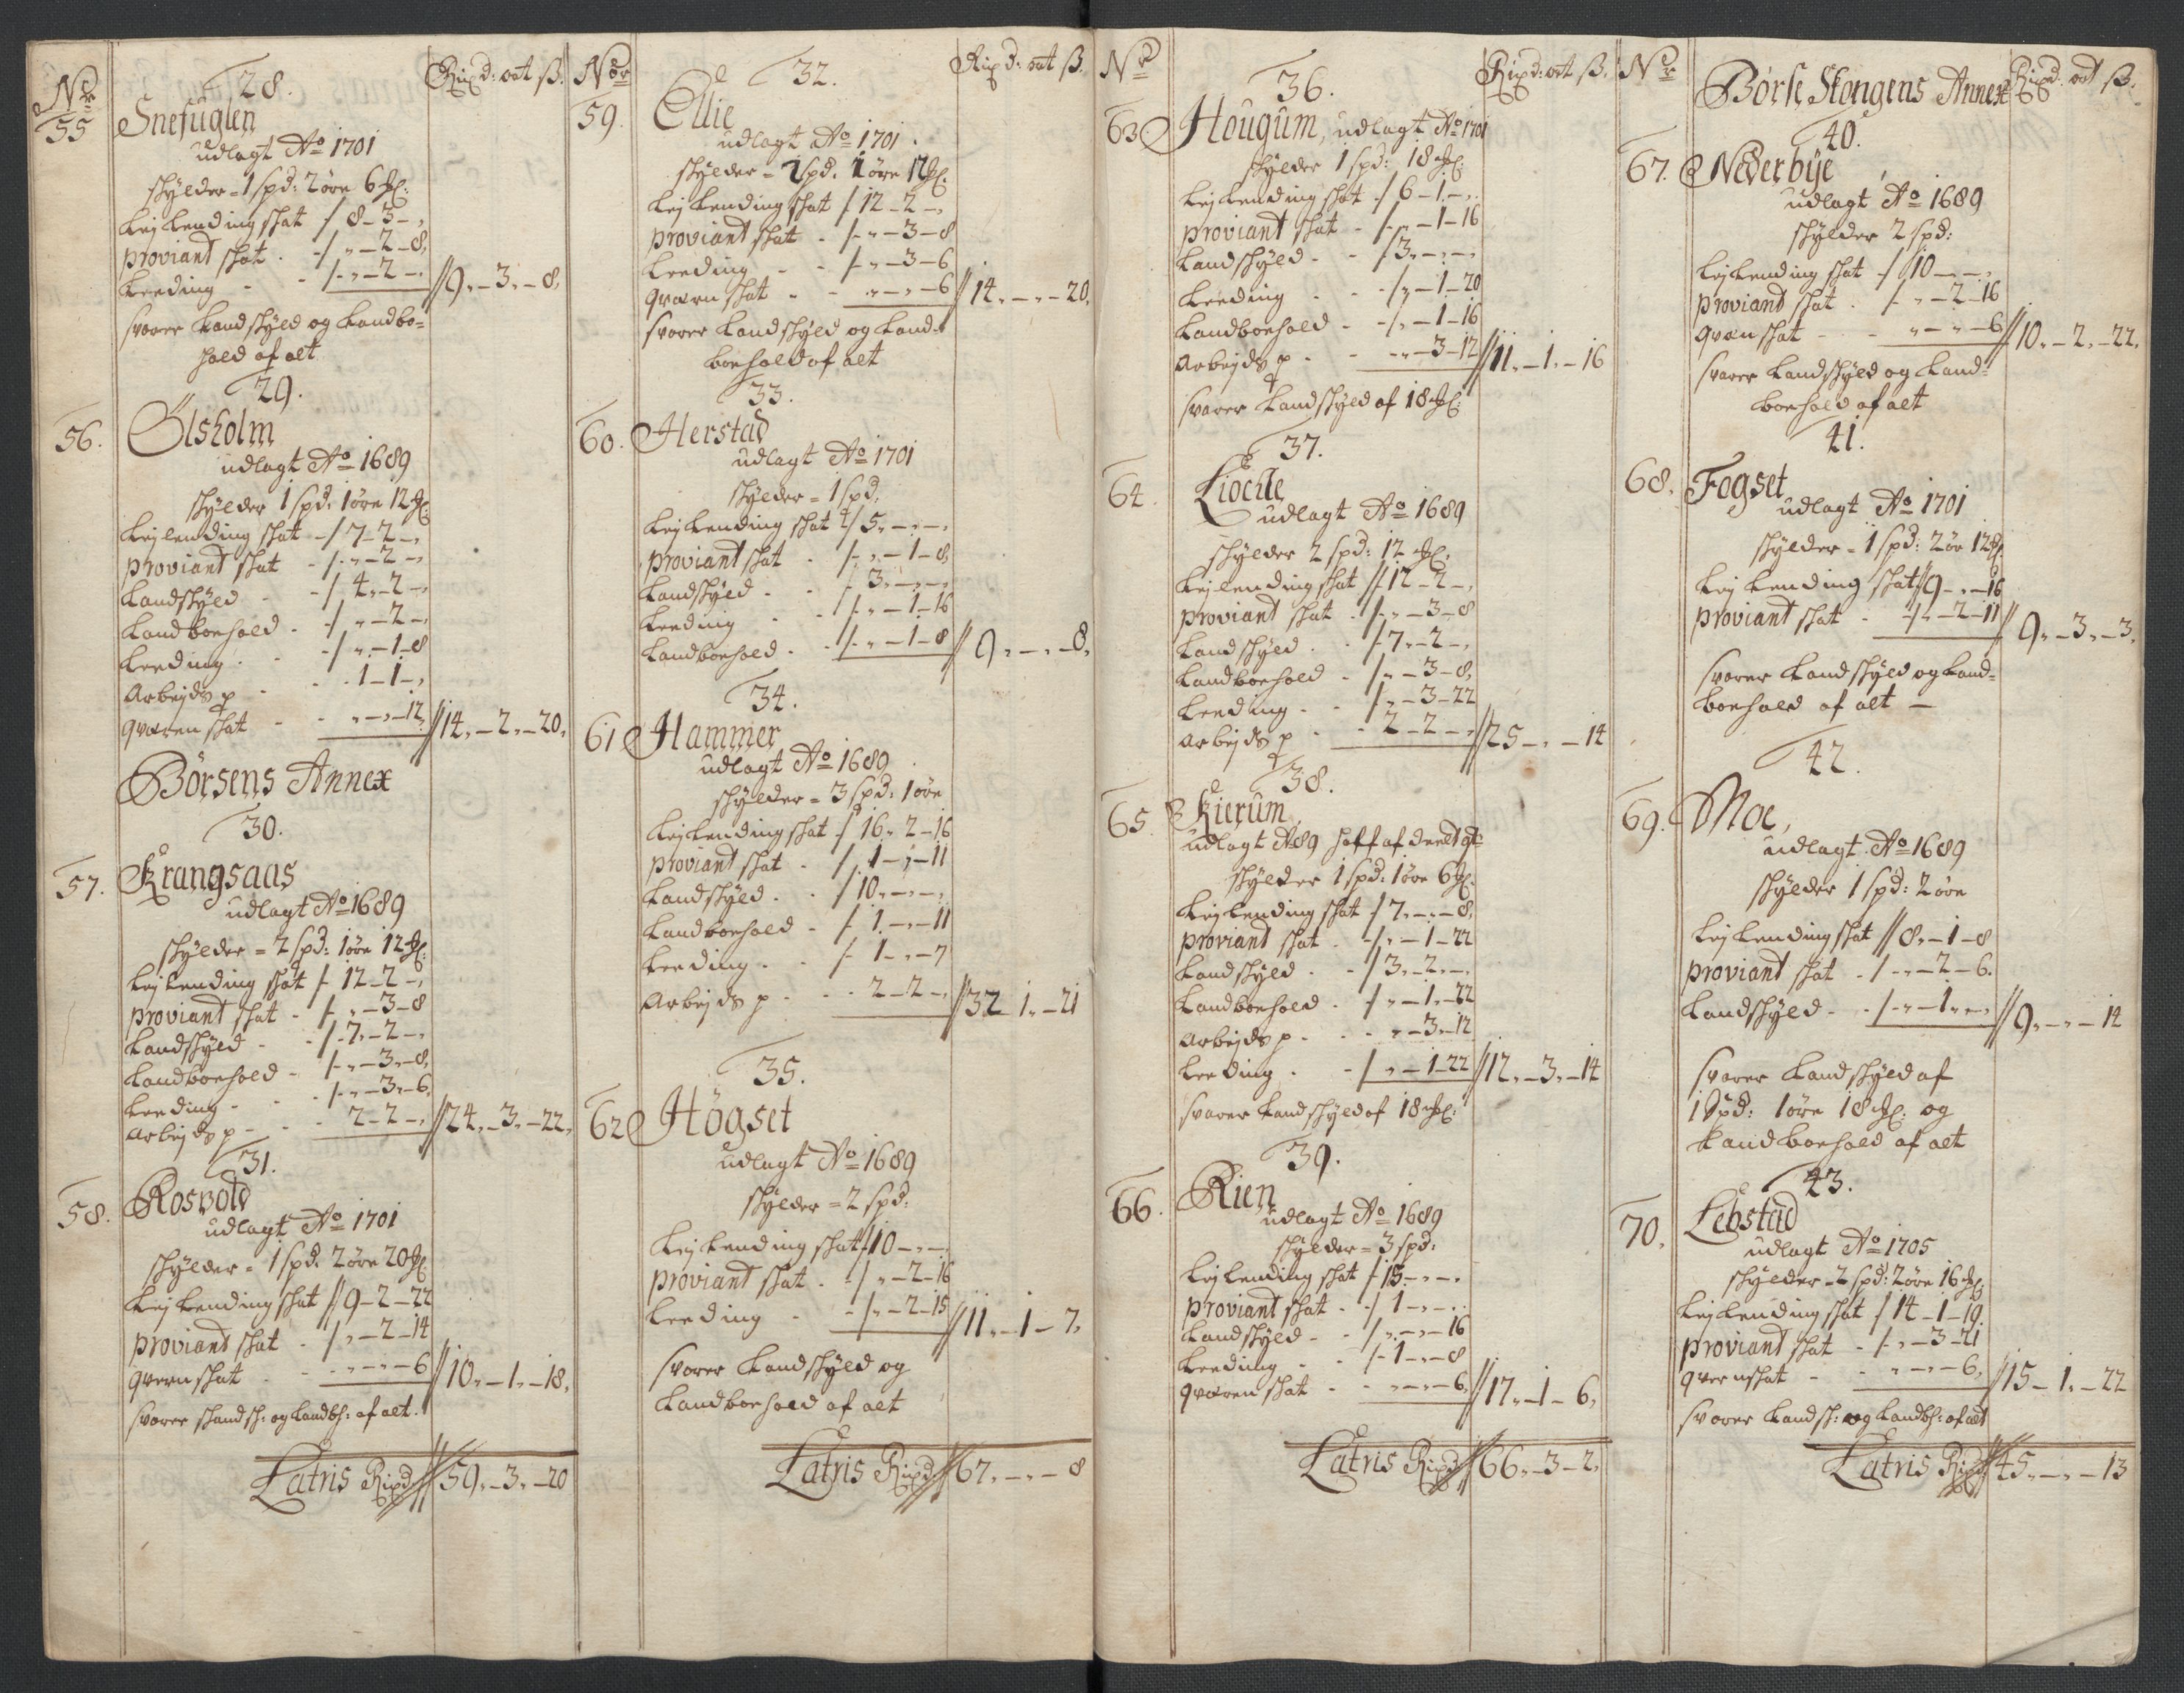 Nr
28.
Rixd: ort ß.
55
Snefuglen
udlagt Ao 1701
skylder = 1 spd: 2 øre 6 ml:
Leylending skat / 8 - 3 -,
proviant skat - / „ - 2 - 8,
Leeding - - / „ - 2 -. // 9, - 3, - 8,
svarer Landskyld og Landbo=
hold af alt
29.
56. Ölsholm
udlagt Ao 1689
skylder 1 spd: 1 øre 12 ml
Leylending skat - / 7 - 2 -,
proviant skat - / „ - 2 -,
Landskyld - / 4, - 2 -,
Landboehold - / „ - 2 -,
Leeding - - / „ - 1 - 8
Arbejds p - . 1 - 1 -,
qværen skat - - „ - „ - 12, // 14, - 2, - 20,
Börsens Annex
30.
57. Krangsaas
udlagt Ao 1689
skylder = 2 spd: 1 øre 12 ml:
Leylending skat / 12 - 2 -,
proviant skat - / „ - 3 - 8
Landskyld - / 7, - 2 -,
Landboehold - / „ - 3, - 8,
Leeding - - / „ - 3, - 6,
Arbejds p - - 2 - 2 -, // 24, - 3, - 22,
31.
58. Rosvold
udlagt Ao 1701
skylder = 1 spd. 2 øre 20 ml
Leylending skat // 9 - 2 - 22
proviant skat - / „ - 2 - 14
qvern skat - - „ - „ - 6 // 10, - 1, - 18,
svarer skandsk: og Landbh: af alt.
Latris Rixd // 59, - 3, - 20
Nor
32.
Rixd: ort ß.
59. Ellie
udlagt Ao 1701.
skylder = 2 spd. 1 øre 12 ml.
Leylending skat / 12 - 2 -,
proviant skat - / „ - 3 - 8
Leeding - - / „ - 3 - 6
qværn skat - - „ - „ - 6 // 14, - „ - 20,
svarer Landskyld og Land=
boehold af alt
33.
60. Herstad
udlagt Ao 1701
skylder = 1 spd,
Leylending skat / 5, - „ -,
proviant skat - / „ - 1 - 8,
Landskyld - - / 3, - „ -,
Leeding - - / „ - 1 - 16
Landboehold - - / „ - 1 - 8 // 9, - „ - 8,
34.
61 Hammer
udlagt Ao 1689
skylder = 3 spd: 1 øre
Leylending skat / 16, 2 - 16
proviant skat - / 1 - „ - 11
Landskyld - - / 10, - „ -,
Landboehold - / 1 - „ - 11
Leeding - - / 1 - „ - 7
Arbejds p - - 2 - 2 -, // 32 1, - 21
35.
62 Högset
udlagt Ao 1689
skylder = 2 spd:
Leylending skat / 10 - „ -,
proviant skat - / „ - 2 - 16
Leeding - - / „ - 2 - 15 // 11, - 1 - 7,
svarer Landskyld og
Landboehold af alt
Latris Rixd // 67, - „ - 8
Nr
36.
Rixd: ort ß.
63 Hougum, udlagt Ao 1701
skylder 1 spd: 18 ml:
Leylending skat / 6 - 1 -,
proviant skat - / „ - 1 - 16
Landskyld - - / 3, - „ -,
Leeding - - / „ - 1 - 20
Landboehold - - / „ - 1 - 16
Arbejds p - - „ - 3 - 12 // 11, - 1, - 16
svarer Landskyld af 18 ml:
37.
64.
udlagt Ao 1689
skylder 2 spd: 12 ml:
Leylending skat // 12 - 2 -,
proviant skat - / „ - 3 - 8
Landskyld - / 7, - 2 -,
Landboehold - / „ - 3 - 8,
Leeding - - / „ - 3 - 22
Arbejds p - - 2 - 2 -, // 25 - „ - 14
38.
65. Kierum,
udlagt Ao 89
skylder 1 spd: 1 øre 6 ml.
Leylending skat / 7, - „ - 8,
proviant skat - / „ - 1 - 22
Landskyld - - / 3, - 2, -,
Landboehold - / „ - 1, - 22
Arbejds p - - „ - 3, - 12
Leeding - - / „ - 1 22 // 12, - 3, - 14
svarer Landskyld af 18 ml:
39.
66. Rien
udlagt Ao 1689
skylder = 3 spd:
Leylending skat / 15 - „ -,
proviant skat - / 1 - „ -,
Landskyld - - / „ - „ - 16
Leeding - - / 1 - „ - 8
qværen skat - - „ - „ - 6, // 17, - 1 - 6,
Latris Rixd // 66, - 3 - 2,
Nr
Börse Skongens Annex
Rixd. ort ß.
40.
67. Nederbye
udlagt Ao 1689
skylder 2 spd:
Leylending skat / 10 - „ -,
proviant skat - / „ - 2 - 16
qvæn skat - - „ - „ - 6 // 10, - 2, - 22,
svarer Landskyld og Land=
boehold af alt
41.
68. Fogset
udlagt Ao 1701
skylder = 1 spd: 2 ør 12 ml
Leylending skat / 9 - „ - 16
proviant skat - / „ - 2 - 11 // 9, - 3, - 3,
svarer Landskyld og Land=
boehold af alt -
42.
69. Moe,
udlagt Ao 1689
skylder 1 spd: 2 øre
Leylending skat // 8, - 1 - 8
proviant skat - / „ - 2 - 6.
Landskyld - - / „ - 1, - „ // 9, - „ - 14
svarer Landskyld af
1 Spd: 1 øre 18 ml. og
Landboehold af alt
43.
70. Lebstad
udlagt Ao 1705
skylder = 2 spd: 2 øre 16 ml.
Leylending skat / 14 - 1 - 19.
proviant skat - / „ - 3 - 21
qvernskat - - „ - „ - 6, // 15 - 1, - 22
svarer Landsk: og Landbh: af alt
Latris Rixd // 45, - „ - 13